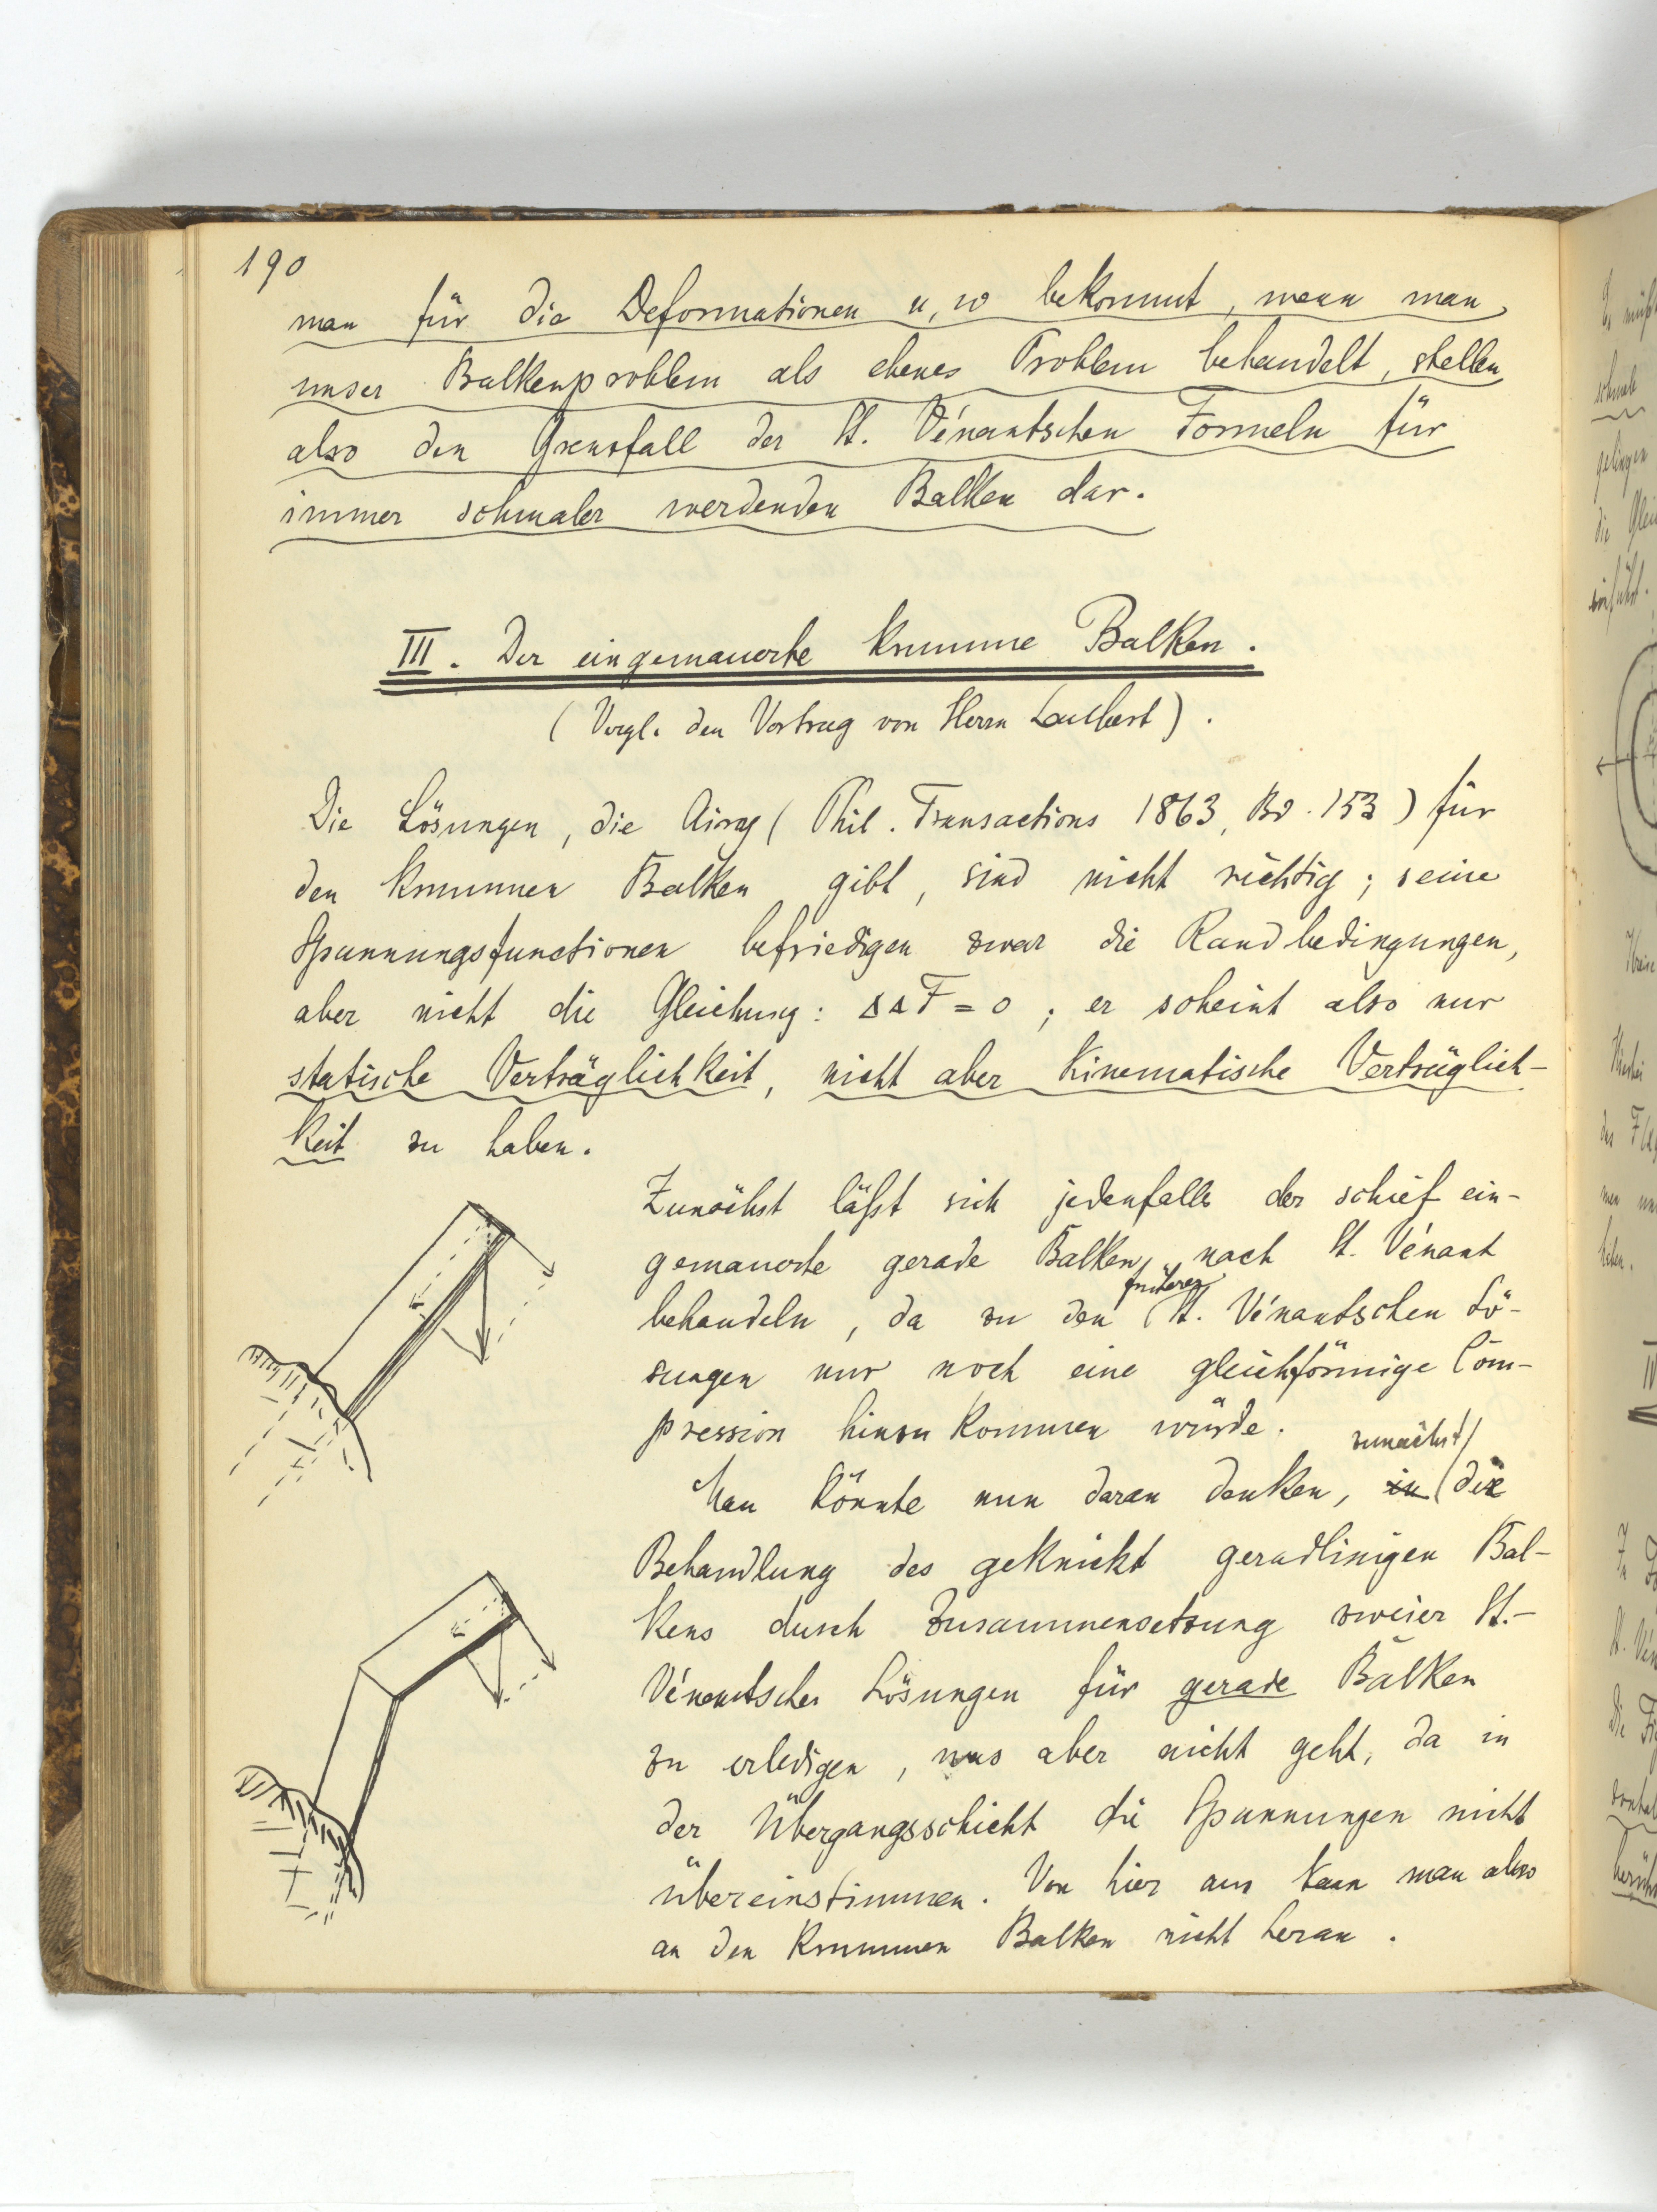 190
man für die Deformationen u, w bekommt, wenn man
unser Balkenproblem als ebenes Problem behandelt, stellen
also den Grenzfall der St. Vénantschen Formeln für
immer schmaler werdenden Balken dar.
III. Der eingemauerte krumme Balken.
(Vergl. den Vortrag von Herrn).
Die Lösungen, die Airy (Phil. Transactions 1863, Bd. 153) für
den krummen Balken gibt, sind nicht richtig; seine
Spannungsfunctionen befriedigen zwar die Randbedingungen,
aber nicht die Gleichung: ΔΔF = 0; er scheint also nur
statische Verträglichkeit, nicht aber kinematische Verträglich-
keit zu haben.
Zunächst läßt sich jedenfalls der schief ein-
gemauerte gerade Balken nach St. Vénant
früheren
behandeln, da zu den St. Vénantschen Lö-
sungen nur noch eine gleichförmige Com-
pression hinzu kommen würde.
zunächst
Man könnte nun daran denken, in die
Behandlung des geknickt geradlinigen Bal-
kens durch Zusammensetzung zweier St.-
Vénantscher Lösungen für gerade Balken
zu erledigen, was aber nicht geht, da in
der Übergangsschicht die Spannungen nicht
übereinstimmen. Von hier aus kann man also
an den krummen Balken nicht heran.